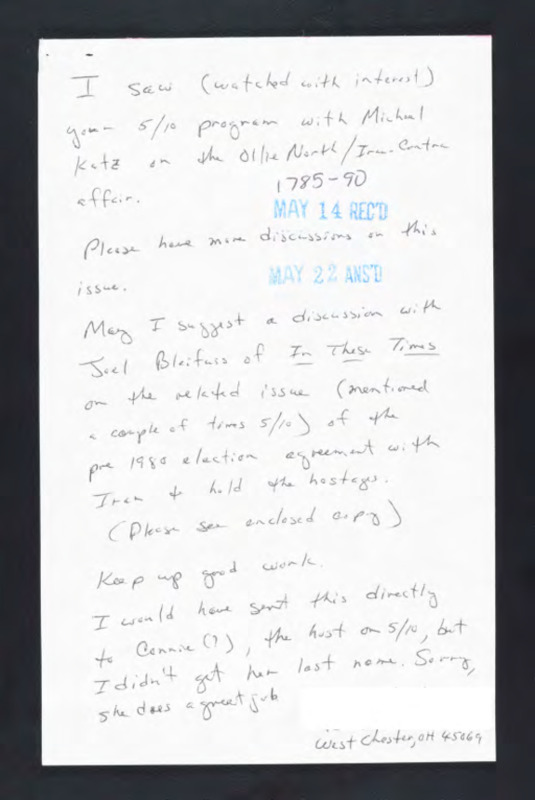 I saw (watched with interest)
your 5/10 program with Michael
Katz on the Ollie North/Iran-Contra
affair.
1785-90
MAY 14 REC'D
Please have more discussions on this
issue.
MAY 22 ANS'D
May I suggest a discussion with
Joel Bleifuss of In These Times
on the related issue (mentioned
a couple of times 5/10) of the
pre 1980 election agreement with
Iran to hold the hostages.
(Please see enclosed copy)
Keep up good work.
I would have sent this directly
to Connie (?), the host on 5/10, but
I didn't get her last name. Sorry,
she does a great job
West Chester, OH 45069